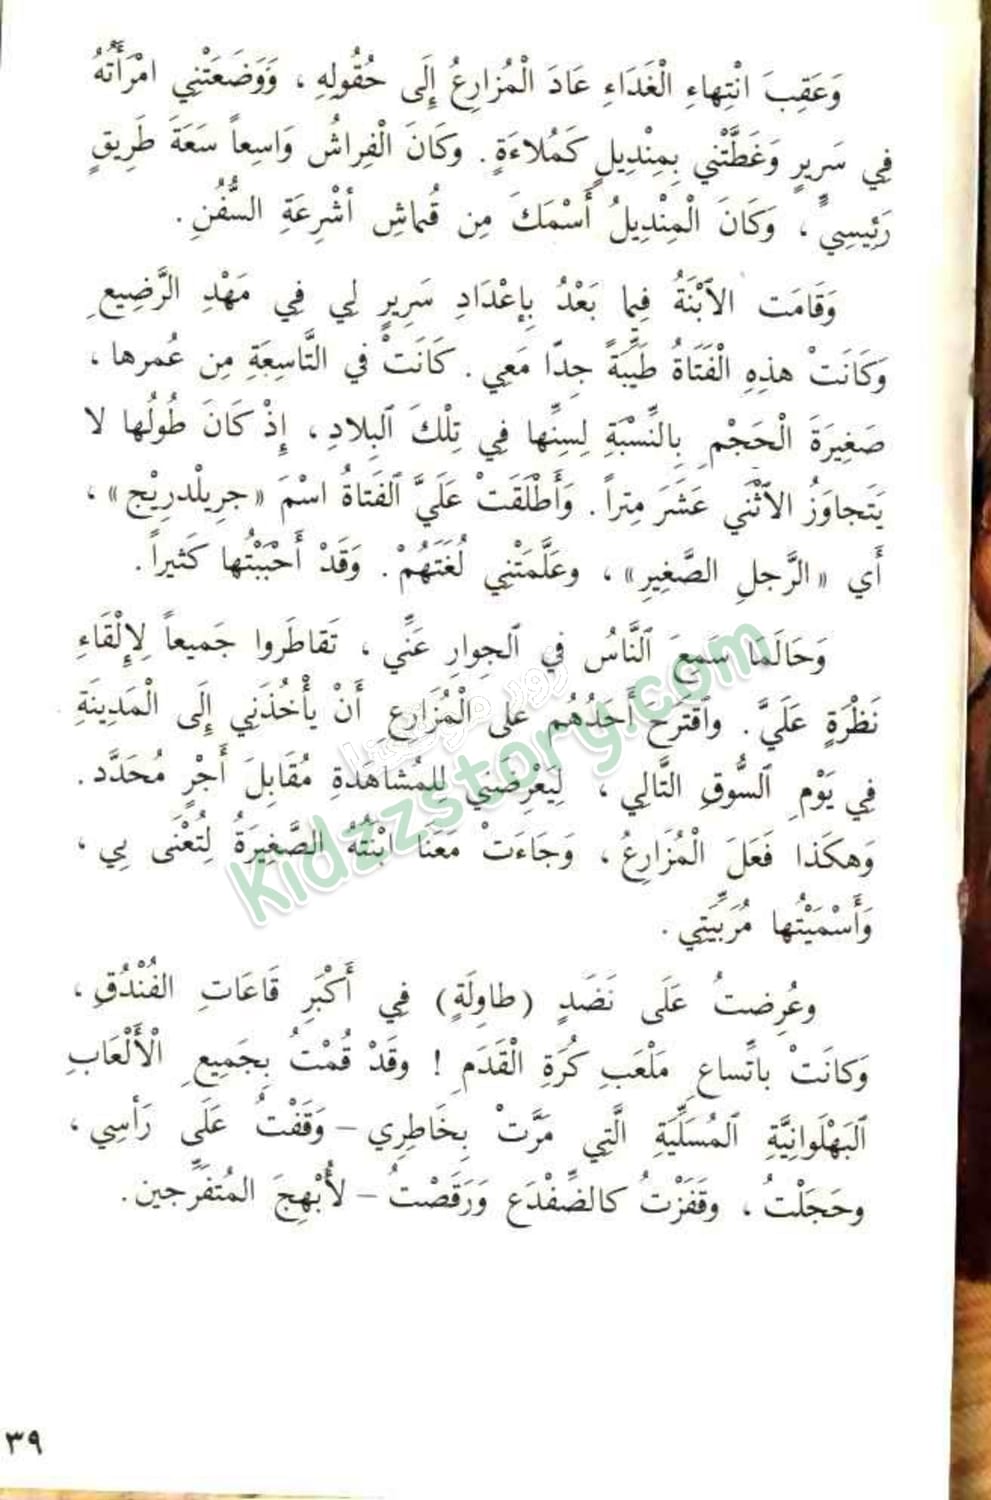 وَعَقِبَ انْتِهاءِ الْغَدَاءِ عَادَ الْمُزَارِعُ إِلَى حُقُولِهِ ، وَوَضَعَتْنِي امْرَأَتُهُ
فِي سَرِيرٍ وَغَطَّتْنِي بِمِنْدِيلٍ كَمُلاءَةٍ . وَكَانَ الْفِراشُ وَاسِعاً سَعَةَ طَرِيقٍ
رَئِيسِيٍّ ، وَكَانَ الْمِنْدِيلُ أَسْمَكَ مِن قُماشِ أشْرِعَةِ السُّفُنِ .
وَقَامَت الاَبْنَةُ فِيما بَعْدُ بِإعْدَادِ سَرِيرٍ لِي فِي مَهْدِ الرَّضِيعِ
وَكَانَتْ هذِهِ الْفَتَاةُ طَيِّبَةً جِدّا مَعِي . كَانَتْ في التَّاسِعَةِ مِن عُمرها ،
صَغِيرَةَ الْحَجْمِ بِالنِّسْبَةِ لِسِنِّها فِي تِلْكَ البِلادِ ، إِذْ كَانَ طُولُها لا
يَتَجاوَزُ الاَثْنَي عَشَرَ مِتراً . وَأَطْلَقَتْ عَلَيَّ الفَتاةُ اسْمَ «جرِيلْدرِيْج» ،
أَي «الرَّجلِ الصَّغِيرِ» ، وعَلَّمَتْنِي لُغَتَهُمْ . وَقَدْ أَحْبَبْتُها كَثيراً .
وَحَالَمَا سَمِعَ النَّاسُ في الجِوارِ عَنِّي ، تَقاطَروا جَميعاً لِإلْقَاءِ
نَظْرَةٍ عَلَيَّ . واقْتَرَحَ أَحَدُهُم على الْمُزَارِعِ أَنْ يأْخُذَنِي إِلَى الْمَدِينَةِ
فِي يَوْمِ السُّوقِ التَّالِي ، لِيَعْرِضَني لِلمُشاهَدَةِ مُقَابِلَ أَجْرٍ مُحَدَّد .
وَهكَذا فَعَلَ الْمُزَارِعُ ، وَجَاءَتْ مَعَنَا ابْنَتُهُ الصَّغِيرَةُ لِتُعْنَى بِي ،
وَأَسْمَيْتُها مُرَبِّيَتِي .
وعُرِضتُ عَلَى نَضَدٍ (طاوِلَةٍ) فِي أَكْبَرِ قَاعَاتِ الفُنْدُقِ ،
وَكانَتْ باتِّساعِ مَلْعَبِ كُرَةِ الْقَدَمِ ! وقَدْ قُمْتُ بِجَمِيعِ الْأَلْعَابِ
البَهْلَوانِيَّةِ المُسَلِّيَةِ الَّتِي مَرَّتْ بِخَاطِرِي – وَقَفْتُ عَلَى رَأسِي ،
وحَجَلْتُ ، وقَفَزْتُ كالضِّفْدَع وَرَقَصْتُ – لأُبْهِجَ المُتَفَرِّجين .
زوروا موقعنا
kidzzstory.com
٣٩